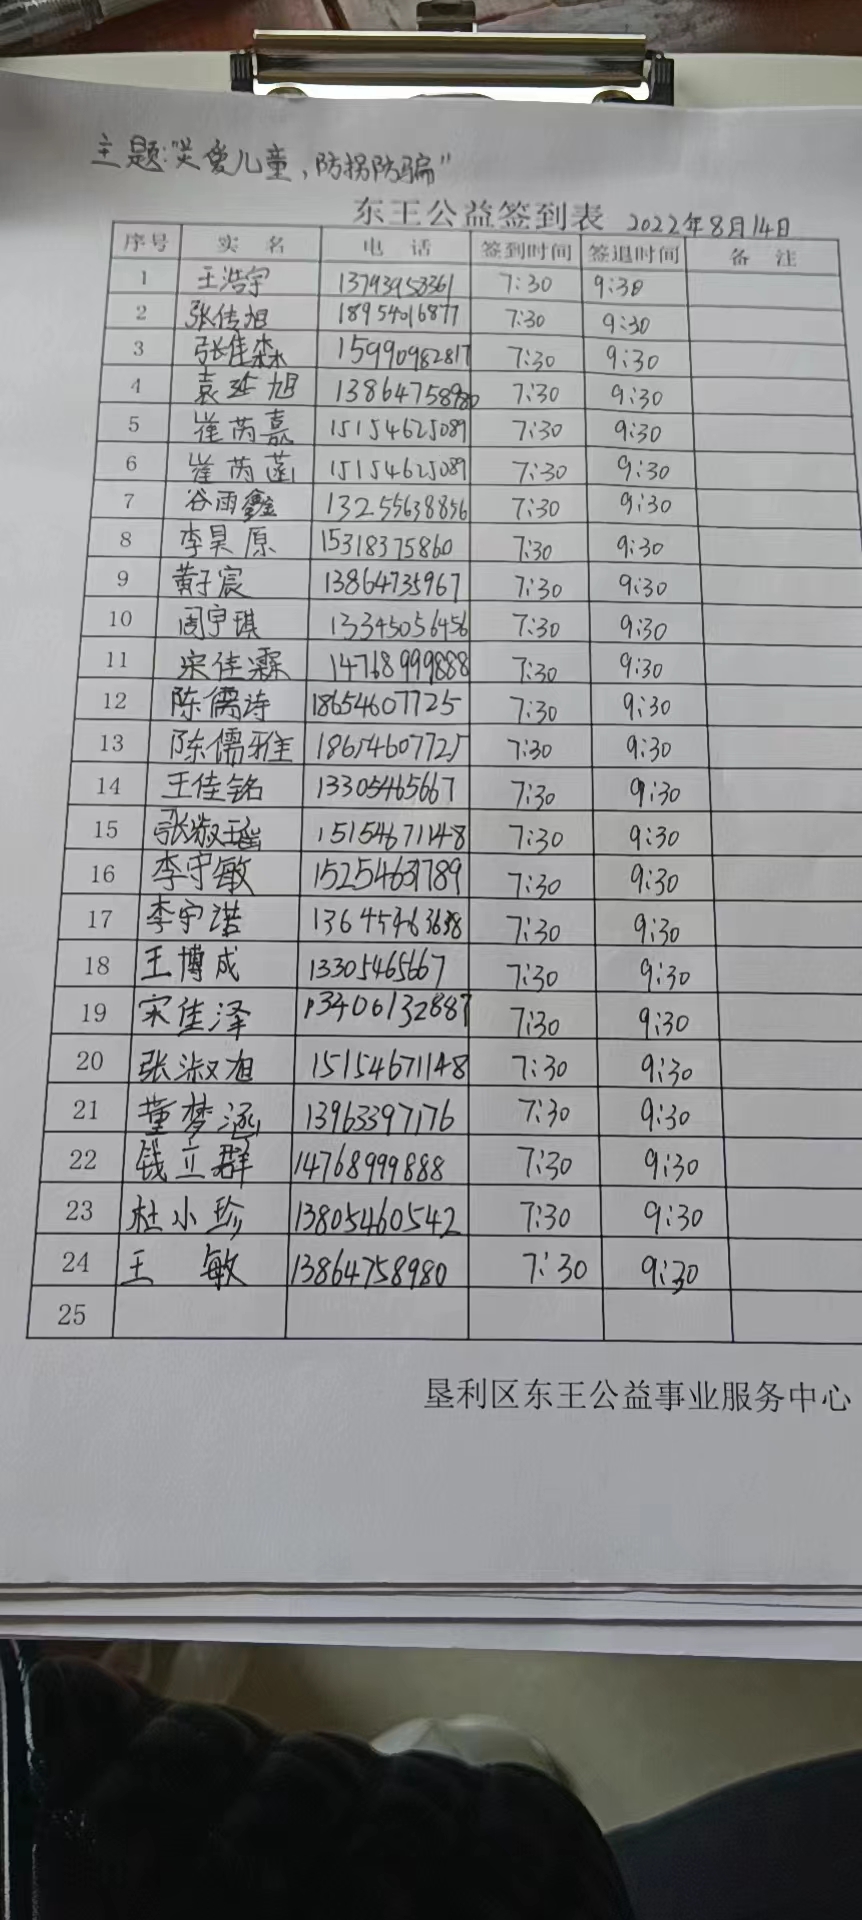 主题:"关爱儿童,防拐防骗"
东王公益签到表 2022年8月14日
序号 实 名 电 话 签到时间 签退时间 备 注
1 王浩宇 13793958361 7:30 9:30
2 张传旭 18954016877 7:30 9:30
3 张佳森 15990982817 7:30 9:30
4 袁 旭 13864758980 7:30 9:30
5 崔芮嘉 15154625089 7:30 9:30
6 崔芮菡 15154625089 7:30 9:30
7 谷雨鑫 13255638856 7:30 9:30
8 李昊原 15318375860 7:30 9:30
9 黄子宸 13864735967 7:30 9:30
10 周宇琪 13345056456 7:30 9:30
11 宋佳霖 14768999888 7:30 9:30
12 陈儒诗 18654607725 7:30 9:30
13 陈儒雅 18654607725 7:30 9:30
14 王佳铭 13305465667 7:30 9:30
15 张淑瑶 15154671148 7:30 9:30
16 李宇敏 15254631789 7:30 9:30
17 李宇 7:30 9:30
18 王博成 13305465667 7:30 9:30
19 宋佳泽 13406132887 7:30 9:30
20 张淑旭 15154671148 7:30 9:30
21 董梦涵 13963397176 7:30 9:30
22 钱立群 14768999888 7:30 9:30
23 杜小珍 13805460542 7:30 9:30
24 王 敏 13864758980 7:30 9:30
25
垦利区东王公益事业服务中心